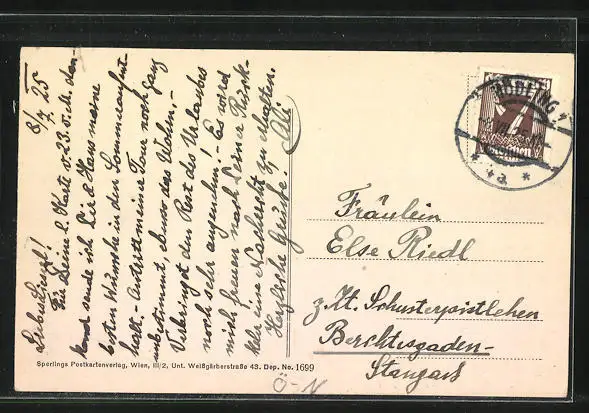 8/7. 25
Liebe Liesl!
Für Deine l. Karte v. 23. v. M. dan-
kend sende ich Dir & Hans meine
besten Wünsche in den Sommeraufent-
halt. - Antritt meiner Tour noch ganz
unbestimmt, ebenso das Wohin. -
Verbringst den Rest des Urlaubes
noch sehr angenehm! - Es wird
mich freuen nach Deiner Rück-
kehr eine Nachricht zu erhalten.
Herzliche Grüsse!
MÖDLING
Fräulein
Else Riedl
z. Zt. Schusterpointlehen
Berchtesgaden-
Stangass
Sperlings Postkartenverlag, Wien, III/2, Unt. Weißgärberstraße 43. Dep. No. 1699
Ö-N